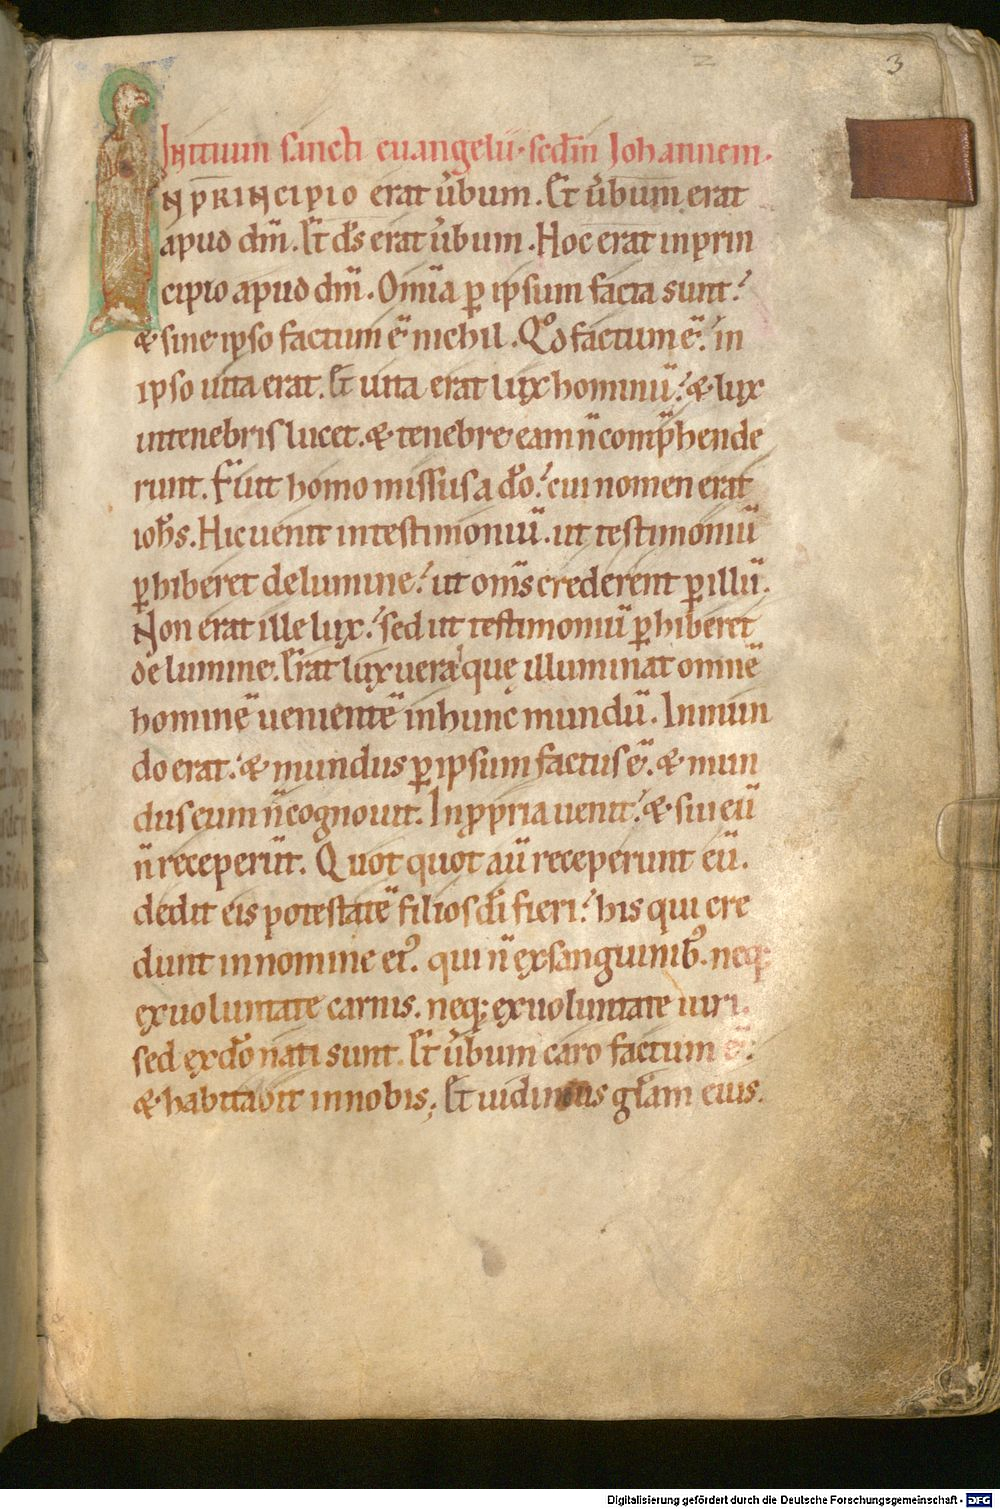 3
Initium sancti euangelii · scdm̄ Iohannem ·
IN PRINCIPIO erat ūbum . Et ūbum erat
apud dm̄ . Et ds̄ erat ūbum . Hoc erat in prin
cipio apud dm̄ . Omīa ꝑ ipsum facta sunt :
& sine ipso factum ē nichil . Qͦd factum ē : in
ipso uita erat . Et uita erat lux hominū : & lux
in tenebris lucet . & tenebre eam n̄ comp̄hende
runt . Fuit homo missus a dō : cui nomen erat
ioh̄s . Hic uenit in testimoniū . ut testimoniū
ꝑhiberet de lumine : ut om̄s crederent ꝑ illū .
Non erat ille lux : sed ut testimoniū ꝑhiberet
de lumine . Erat lux uera quę illuminat omnē
hominē uenientē in hunc mundū . In mun
do erat : & mundus ꝑ ipsum factus ē . & mun
dus eum n̄ cognouit . In ꝓpria uenit : & sui eū
n̄ receperūt . Quot quot aū receperunt eū .
dedit eis potestatē filios dī fieri : his qui cre
dunt in nomine ei᾽ . qui n̄ ex sanguinib᾽ . neq;
ex uoluntate carnis . neq; ex uoluntate uiri .
sed ex dō nati sunt . Et ūbum caro factum ē :
& habitabit in nobis ; Et uidimus głam eius .
Digitalisierung gefördert durch die Deutsche Forschungsgemeinschaft - DFG